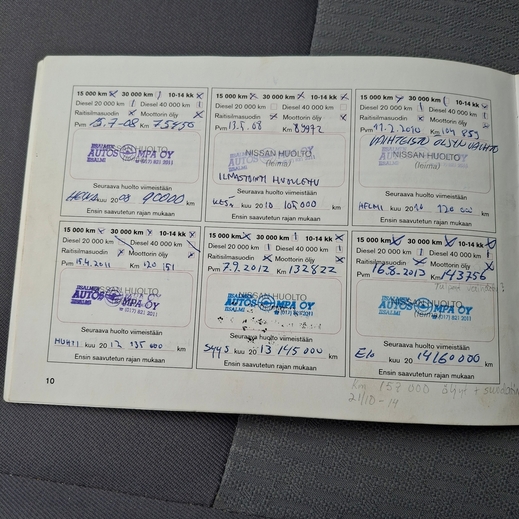 15 000 km 30 000 km 10-14 kk
Diesel 20 000 km Diesel 40 000 km
Raitisilmasuodin Moottorin öljy
Pvm 15.7-08 Km
NISSAN HUOLTO
AUTOS MPA OY
IISALMI (017) 821 2011
Seuraava huolto viimeistään
kuu 2009 90000 km
Ensin saavutetun rajan mukaan
15 000 km 30 000 km 10-14 kk
Diesel 20 000 km Diesel 40 000 km
Raitisilmasuodin Moottorin öljy
Pvm Km
NISSAN HUOLTO
(leima)
ILMASTOINTI HUOLLETTU
Seuraava huolto viimeistään
kuu 2010 105 000 km
Ensin saavutetun rajan mukaan
15 000 km 30 000 km 10-14 kk
Diesel 20 000 km Diesel 40 000 km
Raitisilmasuodin Moottorin öljy
Pvm 17.2.2010 Km 104 853
VAIHTEISTO ÖLJYN VAIHTO
NISSAN HUOLTO
(leima)
Seuraava huolto viimeistään
HELMI kuu 120 000 km
Ensin saavutetun rajan mukaan
15 000 km 30 000 km 10-14 kk
Diesel 20 000 km Diesel 40 000 km
Raitisilmasuodin Moottorin öljy
Pvm 15.4.2011 Km 120 151
NISSAN HUOLTO
AUTOS MPA OY
IISALMI (017) 821 2011
Seuraava huolto viimeistään
HUHTI kuu 2012 135 000 km
Ensin saavutetun rajan mukaan
15 000 km 30 000 km 10-14 kk
Diesel 20 000 km Diesel 40 000 km
Raitisilmasuodin Moottorin öljy
Pvm 7.9.2012 Km 132822
NISSAN HUOLTO
AUTOS MPA OY
IISALMI (017) 821 2011
Seuraava huolto viimeistään
SYYS kuu 2013 145 000 km
Ensin saavutetun rajan mukaan
15 000 km 30 000 km 10-14 kk
Diesel 20 000 km Diesel 40 000 km
Raitisilmasuodin Moottorin öljy
Pvm 16.8-2013 Km 143756
NISSAN HUOLTO
AUTOS MPA OY
IISALMI (017) 821 2011
Seuraava huolto viimeistään
Elo kuu 2014 160 000 km
Ensin saavutetun rajan mukaan
10
km 157 000 öljyt +
21/10-14